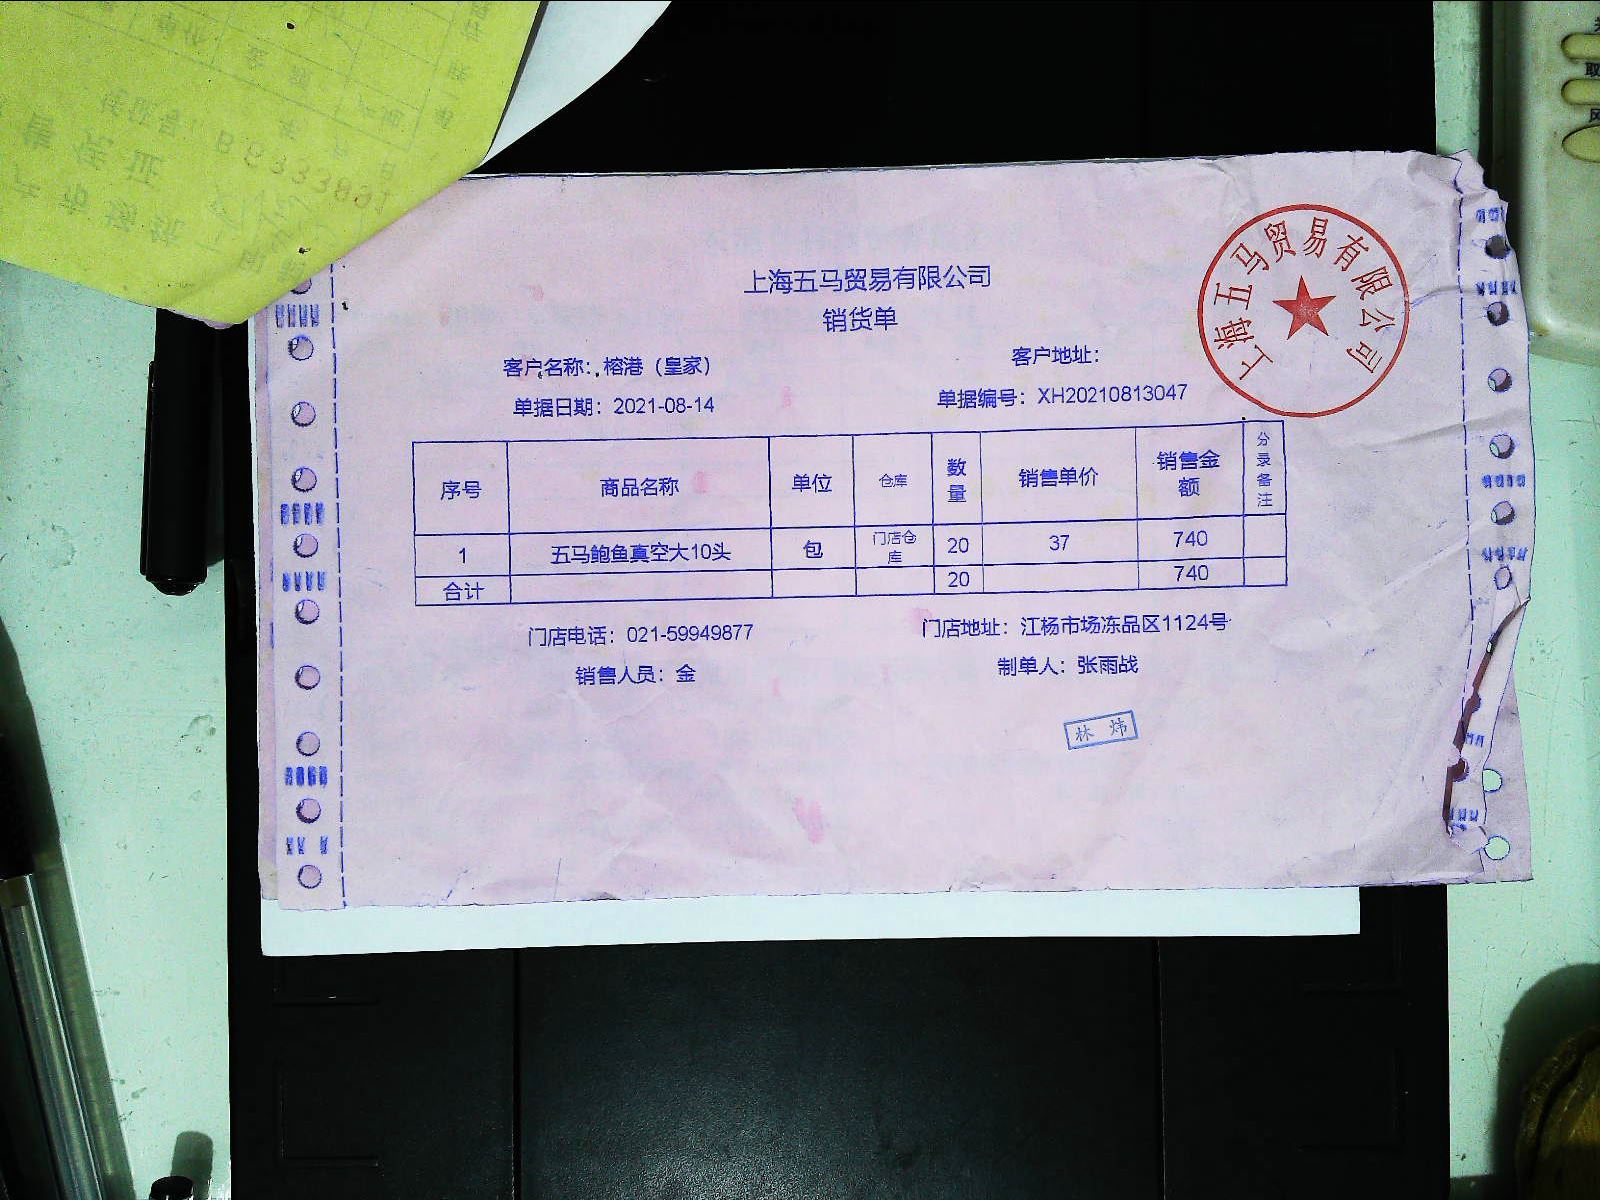 上海五马贸易有限公司
销货单
客户名称：榕港（皇家）
客户地址：
单据日期：2021-08-14
单据编号：XH20210813047
序号 商品名称 单位 仓库 数量 销售单价 销售金额 分录备注
1 五马鲍鱼真空大10头 包 门店仓库 20 37 740
合计 20 740
门店电话：021-59949877
门店地址：江杨市场冻品区1124号
销售人员：金
制单人：张雨战
林 炜
上海五马贸易有限公司